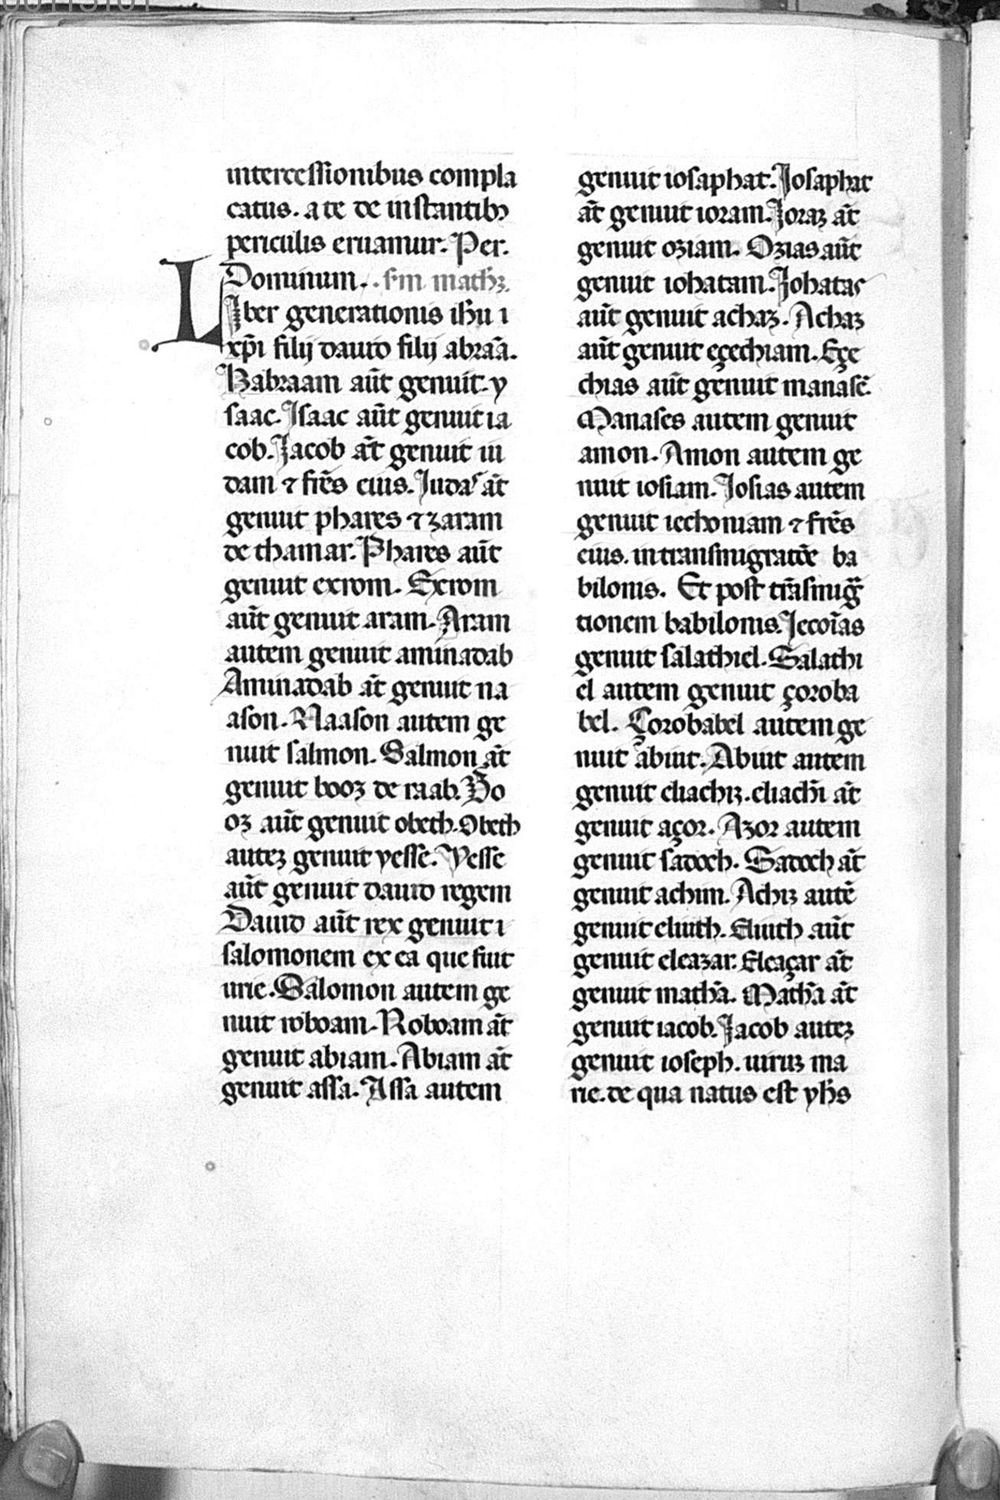 intercessionibus compla
catus. a te de instantibꝰ
periculis eruamur. Per.
Dominum. . sm̄ math̄ꝫ.
Liber generationis ih̄u i
xp̄i filij dauid filij abraā.
Habraam aūt genuit. y
saac. Isaac aūt genuit ia
cob. Jacob āt genuit iu
dam ⁊ fr̄es eius. Judas āt
genuit phares ⁊ zaram
de thamar. Phares aūt
genuit exrom. Exrom
aūt genuit aram. Aram
autem genuit aminadab
Aminadab āt genuit na
ason. Naason autem ge
nuit salmon. Salmon āt
genuit booz de raab. Bo
oz aūt genuit obeth. Obeth
auteꝫ genuit yesse. Yesse
aūt genuit dauid regem
Dauid aūt rex genuit i
salomonem ex ea que fuit
urie. Salomon autem ge
nuit roboam. Roboam āt
genuit abiam. Abiam āt
genuit assa. Assa autem
genuit iosaphat. Josaphat
āt genuit ioram. Joraꝫ āt
genuit oziam. Ozias aūt
genuit iohatam. Johatas
aūt genuit achaz. Achaz
aūt genuit eçechiam. Eçe
chias aūt genuit manasē.
Manases autem genuit
amon. Amon autem ge
nuit iosiam. Josias autem
genuit iechoniam ⁊ fr̄es
eius. in transmigratōe ba
bilonis. Et post trāsmig̃
tionem babilonis. Jecoīas
genuit salathiel. Salathi
el autem genuit çoroba
bel. Çorobabel autem ge
nuit abiut. Abiut autem
genuit eliachiꝫ. eliachī āt
genuit açor. Azor autem
genuit sadoch. Sadoch āt
genuit achim. Achiꝫ autē
genuit eliuth. Eliuth aūt
genuit eleazar. Eleaçar āt
genuit math̄a. Math̄a āt
genuit iacob. Jacob auteꝫ
genuit ioseph. uiruꝫ ma
rie. de qua natus est yh̄s